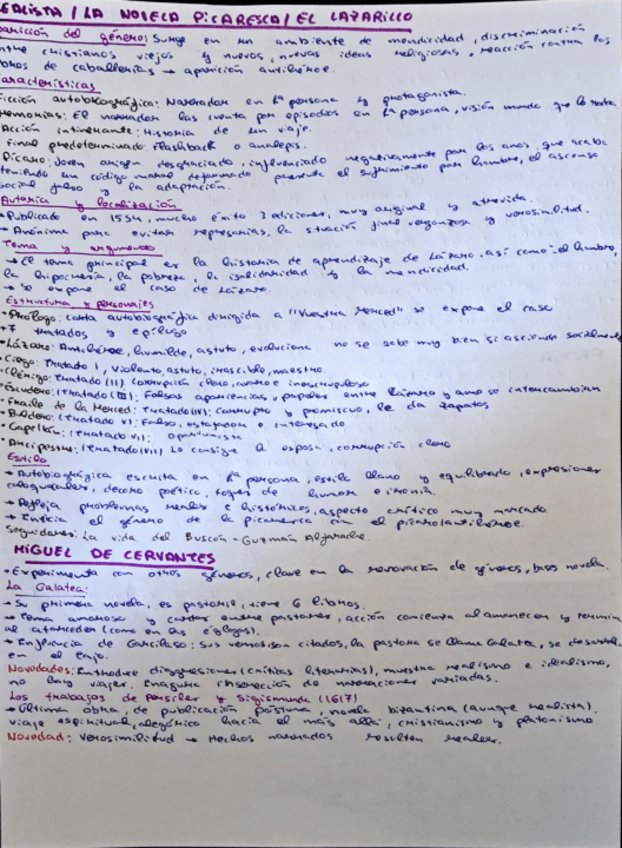 REALISTA / LA NOVELA PICARESCA / EL LAZARILLO
Aparición del género: Surge en un ambiente de mendicidad, discriminación
entre cristianos viejos y nuevos, nuevas ideas religiosas, reacción contra los
libros de caballerías → aparición antihéroe.
Características
Ficción autobiográfica: Narrador en 1ª persona y protagonista.
Memorias: El narrador las cuenta por episodios en 1ª persona, visión mundo que lo rodea.
Acción intinerante: Historia de un viaje.
Final predeterminado: Flashback o analepsis.
Pícaro: Joven origen desgraciado, influenciado negativamente por los amos, que acaba
teniendo un código moral deformado, presente el sufrimiento por hambre, el ascenso
social falso y la adaptación.
Autoría y localización
• Publicado en 1554, mucho éxito 3 ediciones, muy original y atrevida.
→ Anónimo para evitar represarias, la situación final vergonzosa y verosimilitud.
Tema y argumento
→ El tema principal es la historia de aprendizaje de Lázaro, así como: el hambre,
la hipocresía, la pobreza, la insolidaridad y la mendicidad.
→ Se expone el caso de Lázaro.
Estructura y personajes
• Prólogo: Carta autobiográfica dirigida a "Vuestra Merced" se expone el caso
• 7 tratados y epílogo
• Lázaro: Antihéroe, humilde, astuto, evoluciona no se sabe muy bien si asciende socialmente
• Ciego: Tratado I, violento, astuto, irascible, maestro.
• Clérigo: Tratado (II). Corrupción clero, inescrupuloso
• Escudero: (Tratado III): Falsas apariencias, papeles entre Lázaro y amo se intercambian
• Fraile de la Merced: Tratado(IV): Corrupto y promiscuo, le da zapatos
• Buldero: (Tratado V): Falso, estafador e interesado
• Capellán: (Tratado VI): oportunista
• Arcipestre: (Tratado(VII)) Le consigue la esposa, corrupción clero
Estilo
→ Autobiográgica escrita en 1ª persona, estilo llano y equilibrado, expresiones
coloquiales, decoro poético, toques de humor e ironía.
→ Refleja problemas reales e históricos, aspecto crítico muy marcado
→ Inicia el género de la picaresca con el pícaro/antihéroe.
Seguidores: La vida del Buscón - Guzmán Alfarache.
MIGUEL DE CERVANTES
• Experimenta con otros géneros, clave en la renovación de géneros, bases novela.
La Galatea:
→ Su primera novela, es pastoril, tiene 6 libros.
→ Tema amoroso y entre pastores, acción comienza al amanecer y termina
al atardecer (como en las églogas).
→ Influencia de Garcilaso: Sus versos son citados, la pastora se llama Galatea, se desarrolla
en el Tajo.
Novedades: Introduce digresiones (críticas literarias), muestra realismo e idealismo,
no hay viajes. Inagura inserección de narraciones variadas.
Los trabajos de Persiles y Sigismunda (1617)
→ Última obra de publicación póstuma, novela bizantina (aunque realista),
viaje espiritual, alegórico hacia el más allá, cristianismo y platonismo
Novedad: Verosimilitud → Hechos narrados resulten reales.